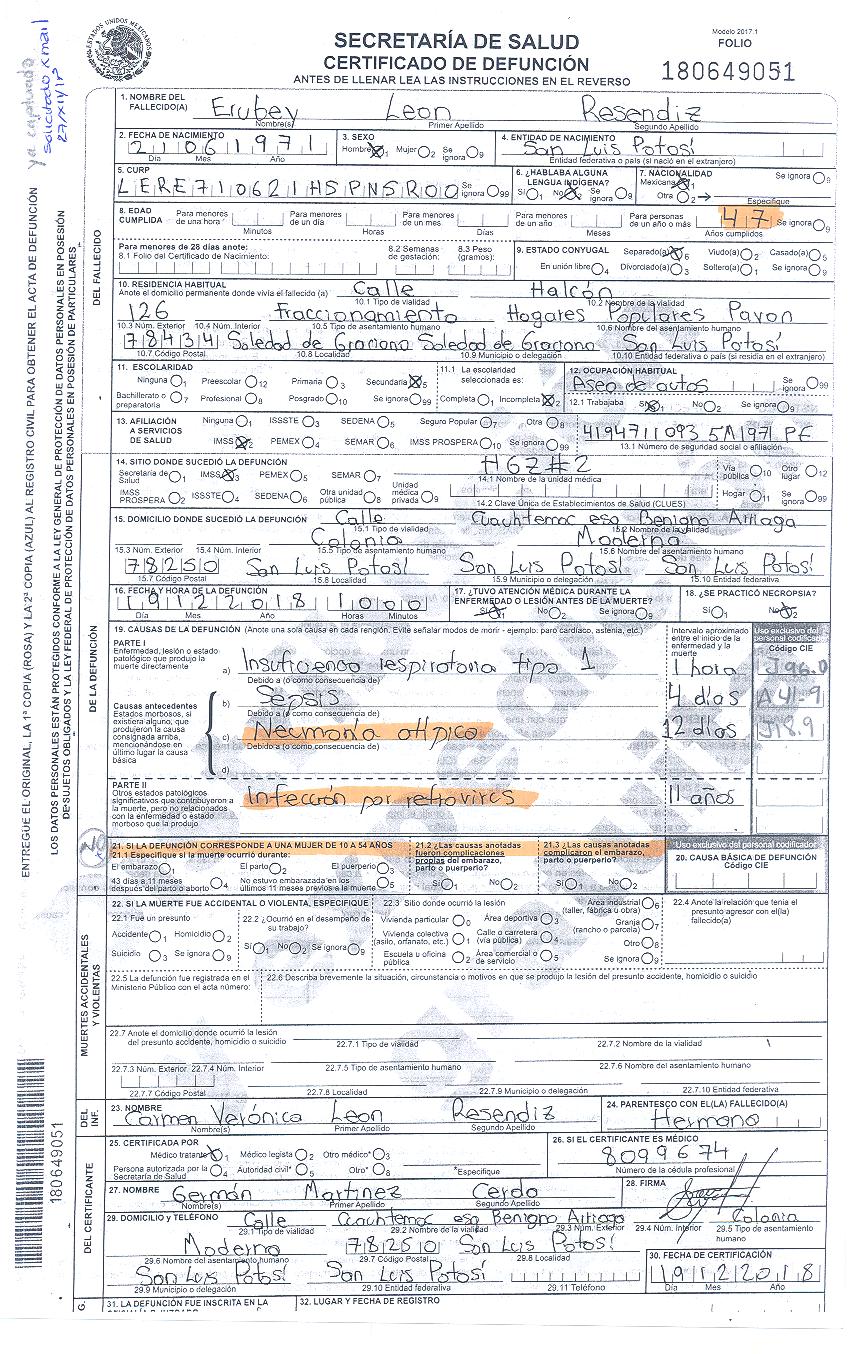 ESTADOS UNIDOS MEXICANOS
SECRETARÍA DE SALUD
CERTIFICADO DE DEFUNCIÓN
ANTES DE LLENAR LEA LAS INSTRUCCIONES EN EL REVERSO
Modelo 2017.1
FOLIO
180649051
ya capturado
solicitado x mail
ENTREGUE EL ORIGINAL, LA 1ª COPIA (ROSA) Y LA 2ª COPIA (AZUL) AL REGISTRO CIVIL PARA OBTENER EL ACTA DE DEFUNCIÓN
LOS DATOS PERSONALES ESTÁN PROTEGIDOS CONFORME A LA LEY GENERAL DE PROTECCIÓN DE DATOS PERSONALES EN POSESIÓN
DE SUJETOS OBLIGADOS Y LA LEY FEDERAL DE PROTECCIÓN DE DATOS PERSONALES EN POSESIÓN DE PARTICULARES
180649051
DEL FALLECIDO
1. NOMBRE DEL FALLECIDO(A) Erubey Leon Resendiz
Nombre(s) Primer Apellido Segundo Apellido
2. FECHA DE NACIMIENTO 21061971 3. SEXO Hombre 1 Mujer 2 Se ignora 9 4. ENTIDAD DE NACIMIENTO San Luis Potosí
Día Mes Año Entidad federativa o país (si nació en el extranjero)
5. CURP LERE710621HSPNSR00 Se ignora 99 6. ¿HABLABA ALGUNA LENGUA INDÍGENA? Sí 1 No 2 Se ignora 9 7. NACIONALIDAD Mexicana 1 Otra 2 Se ignora 9
Especifique
8. EDAD CUMPLIDA Para menores de una hora Para menores de un día Para menores de un mes Para menores de un año Para personas de un año o más 47 Se ignora 9
Minutos Horas Días Meses Años cumplidos
Para menores de 28 días anote: 8.2 Semanas de gestación: 8.3 Peso (gramos): 9. ESTADO CONYUGAL Separado(a) 6 Viudo(a) 2 Casado(a) 5
8.1 Folio del Certificado de Nacimiento: En unión libre 4 Divorciado(a) 3 Soltero(a) 1 Se ignora 9
10. RESIDENCIA HABITUAL Calle Halcón
Anote el domicilio permanente donde vivía el fallecido (a) 10.1 Tipo de vialidad 10.2 Nombre de la vialidad
126 Fraccionamiento Hogares Populares Pavon
10.3 Núm. Exterior 10.4 Núm. Interior 10.5 Tipo de asentamiento humano 10.6 Nombre del asentamiento humano
78434 Soledad de Graciano Soledad de Graciano San Luis Potosí
10.7 Código Postal 10.8 Localidad 10.9 Municipio o delegación 10.10 Entidad federativa o país (si residía en el extranjero)
11. ESCOLARIDAD 11.1 La escolaridad seleccionada es: 12. OCUPACIÓN HABITUAL
Ninguna 1 Preescolar 12 Primaria 3 Secundaria 5 Aseo de autos Se ignora 99
Bachillerato o preparatoria 7 Profesional 8 Posgrado 10 Se ignora 99 Completa 1 Incompleta 2 12.1 Trabajaba Sí 1 No 2 Se ignora 9
13. AFILIACIÓN A SERVICIOS DE SALUD Ninguna 1 ISSSTE 3 SEDENA 5 Seguro Popular 7 Otra 8
IMSS 2 PEMEX 4 SEMAR 6 IMSS PROSPERA 10 Se ignora 99 4194711093 5M1971 PE
13.1 Número de seguridad social o afiliación
DE LA DEFUNCIÓN
14. SITIO DONDE SUCEDIÓ LA DEFUNCIÓN HGZ#2
Secretaría de Salud 1 IMSS 3 PEMEX 5 SEMAR 7 14.1 Nombre de la unidad médica Vía pública 10 Otro lugar 12
IMSS PROSPERA 2 ISSSTE 4 SEDENA 6 Otra unidad pública 8 Unidad médica privada 9 14.2 Clave Única de Establecimientos de Salud (CLUES) Hogar 11 Se ignora 99
15. DOMICILIO DONDE SUCEDIÓ LA DEFUNCIÓN Calle Cuauhtemoc esq Benigno Arriaga
15.1 Tipo de vialidad 15.2 Nombre de la vialidad
Colonia Moderna
15.3 Núm. Exterior 15.4 Núm. Interior 15.5 Tipo de asentamiento humano 15.6 Nombre del asentamiento humano
78250 San Luis Potosí San Luis Potosí San Luis Potosí
15.7 Código Postal 15.8 Localidad 15.9 Municipio o delegación 15.10 Entidad federativa
16. FECHA Y HORA DE LA DEFUNCIÓN 19122018 1000 17. ¿TUVO ATENCIÓN MÉDICA DURANTE LA ENFERMEDAD O LESIÓN ANTES DE LA MUERTE? Sí 1 No 2 Se ignora 9 18. ¿SE PRACTICÓ NECROPSIA? Sí 1 No 2
Día Mes Año Horas Minutos
19. CAUSAS DE LA DEFUNCIÓN (Anote una sola causa en cada renglón. Evite señalar modos de morir - ejemplo: paro cardíaco, astenia, etc.) Intervalo aproximado entre el inicio de la enfermedad y la muerte Uso exclusivo del personal codificador Código CIE
PARTE I
Enfermedad, lesión o estado patológico que produjo la muerte directamente
a) Insuficienca respiratoria tipo 1 1 hora J96.0
Debido a (o como consecuencia de)
Causas antecedentes
Estados morbosos, si existiera alguno, que produjeron la causa consignada arriba, mencionándose en último lugar la causa básica
b) Sepsis 4 días A41-9
Debido a (o como consecuencia de)
c) Neumonía atipica 12 días J18.9
Debido a (o como consecuencia de)
d)
PARTE II
Otros estados patológicos significativos que contribuyeron a la muerte, pero no relacionados con la enfermedad o estado morboso que la produjo
Infección por retrovirus 11 años
NO
21. SI LA DEFUNCIÓN CORRESPONDE A UNA MUJER DE 10 A 54 AÑOS
21.1 Especifique si la muerte ocurrió durante:
El embarazo 1 El parto 2 El puerperio 3
43 días a 11 meses después del parto o aborto 4 No estuvo embarazada en los últimos 11 meses previos a la muerte 5
21.2 ¿Las causas anotadas fueron complicaciones propias del embarazo, parto o puerperio? Sí 1 No 2
21.3 ¿Las causas anotadas complicaron el embarazo, parto o puerperio? Sí 1 No 2
Uso exclusivo del personal codificador
20. CAUSA BÁSICA DE DEFUNCIÓN
Código CIE
MUERTES ACCIDENTALES Y VIOLENTAS
22. SI LA MUERTE FUE ACCIDENTAL O VIOLENTA, ESPECIFIQUE
22.1 Fue un presunto
Accidente 1 Homicidio 2
Suicidio 3 Se ignora 9
22.2 ¿Ocurrió en el desempeño de su trabajo?
Sí 1 No 2 Se ignora 9
22.3 Sitio donde ocurrió la lesión
Vivienda particular 0 Área deportiva 3 Área industrial (taller, fábrica u obra) 6
Vivienda colectiva (asilo, orfanato, etc.) 1 Calle o carretera (vía pública) 4 Granja (rancho o parcela) 7
Escuela u oficina pública 2 Área comercial o de servicio 5 Otro 8
Se ignora 9
22.4 Anote la relación que tenía el presunto agresor con el(la) fallecido(a)
22.5 La defunción fue registrada en el Ministerio Público con el acta número:
22.6 Describa brevemente la situación, circunstancia o motivos en que se produjo la lesión del presunto accidente, homicidio o suicidio
22.7 Anote el domicilio donde ocurrió la lesión del presunto accidente, homicidio o suicidio
22.7.1 Tipo de vialidad 22.7.2 Nombre de la vialidad
22.7.3 Núm. Exterior 22.7.4 Núm. Interior 22.7.5 Tipo de asentamiento humano 22.7.6 Nombre del asentamiento humano
22.7.7 Código Postal 22.7.8 Localidad 22.7.9 Municipio o delegación 22.7.10 Entidad federativa
DEL INF.
23. NOMBRE Carmen Verónica Leon Resendiz 24. PARENTESCO CON EL(LA) FALLECIDO(A) Hermana
Nombre(s) Primer Apellido Segundo Apellido
DEL CERTIFICANTE
25. CERTIFICADA POR 26. SI EL CERTIFICANTE ES MÉDICO
Médico tratante 1 Médico legista 2 Otro médico* 3 8099674
Persona autorizada por la Secretaría de Salud 4 Autoridad civil* 5 Otro* 8 *Especifique Número de la cédula profesional
27. NOMBRE Germán Martinez Cerda 28. FIRMA
Nombre(s) Primer Apellido Segundo Apellido
29. DOMICILIO Y TELÉFONO Calle Cuauhtemoc esq Benigno Arriaga Colonia
29.1 Tipo de vialidad 29.2 Nombre de la vialidad 29.3 Núm. Exterior 29.4 Núm. Interior 29.5 Tipo de asentamiento humano
Moderna 78250 San Luis Potosí
29.6 Nombre del asentamiento humano 29.7 Código Postal 29.8 Localidad 30. FECHA DE CERTIFICACIÓN
San Luis Potosí San Luis Potosí 19122018
29.9 Municipio o delegación 29.10 Entidad federativa 29.11 Teléfono Día Mes Año
G. 31. LA DEFUNCIÓN FUE INSCRITA EN LA 32. LUGAR Y FECHA DE REGISTRO